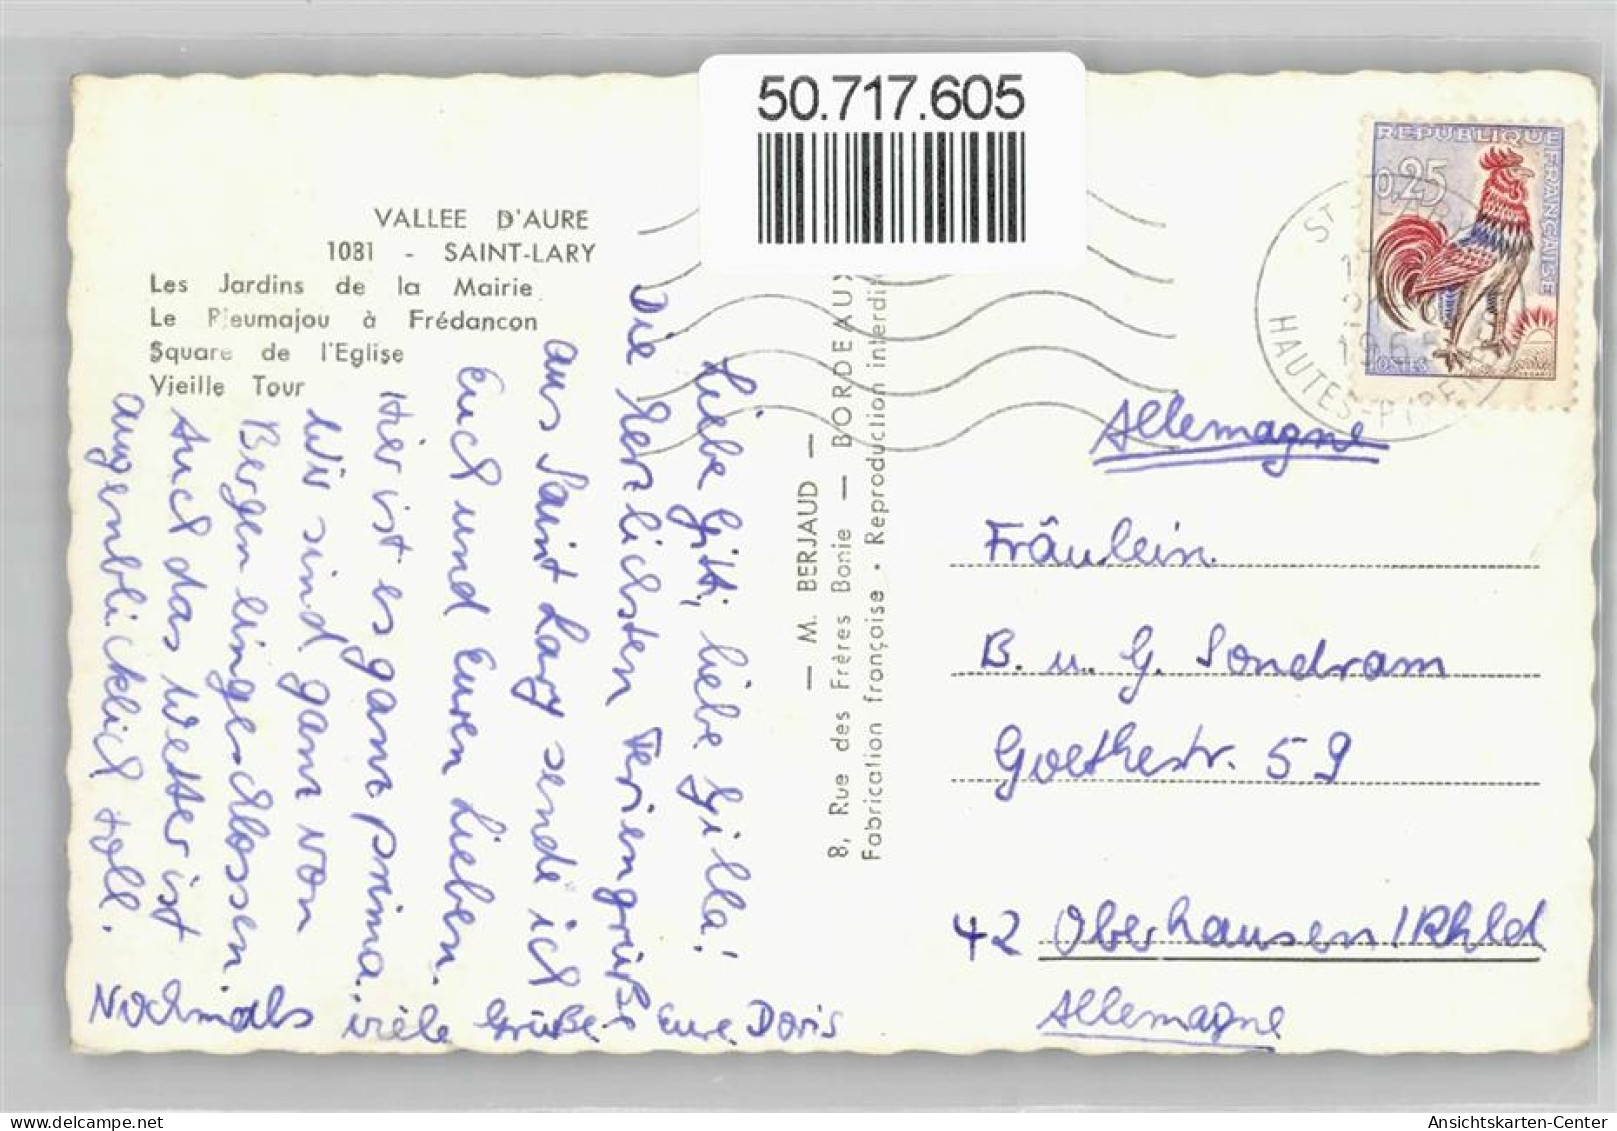 50.717.605
VALLEE D'AURE
1081 - SAINT-LARY
Les Jardins de la Mairie
Le Rieumajou à Frédançon
Square de l'Eglise
Vieille Tour
Liebe Gitti, liebe Gilla!
Die herzlichsten Feriengrüße
aus Saint Lary sende ich
Euch und Euren Lieben.
Hier ist es ganz prima.
Wir sind ganz von
Bergen eingeschlossen.
Auch das Wetter ist
augenblicklich toll.
Nochmals viele Grüße Eure Doris
— M. BERJAUD —
8, Rue des Frères Bonie — BORDEAUX
Fabrication française • Reproduction interdi
REPUBLIQUE FRANÇAISE
0,25
POSTES
ST
HAUTES-PYRENEES
1965
Allemagne
Fräulein
B. u. G. Sondram
Goethestr. 59
42 Oberhausen/Rhld
Allemagne
Ansichtskarten-Center